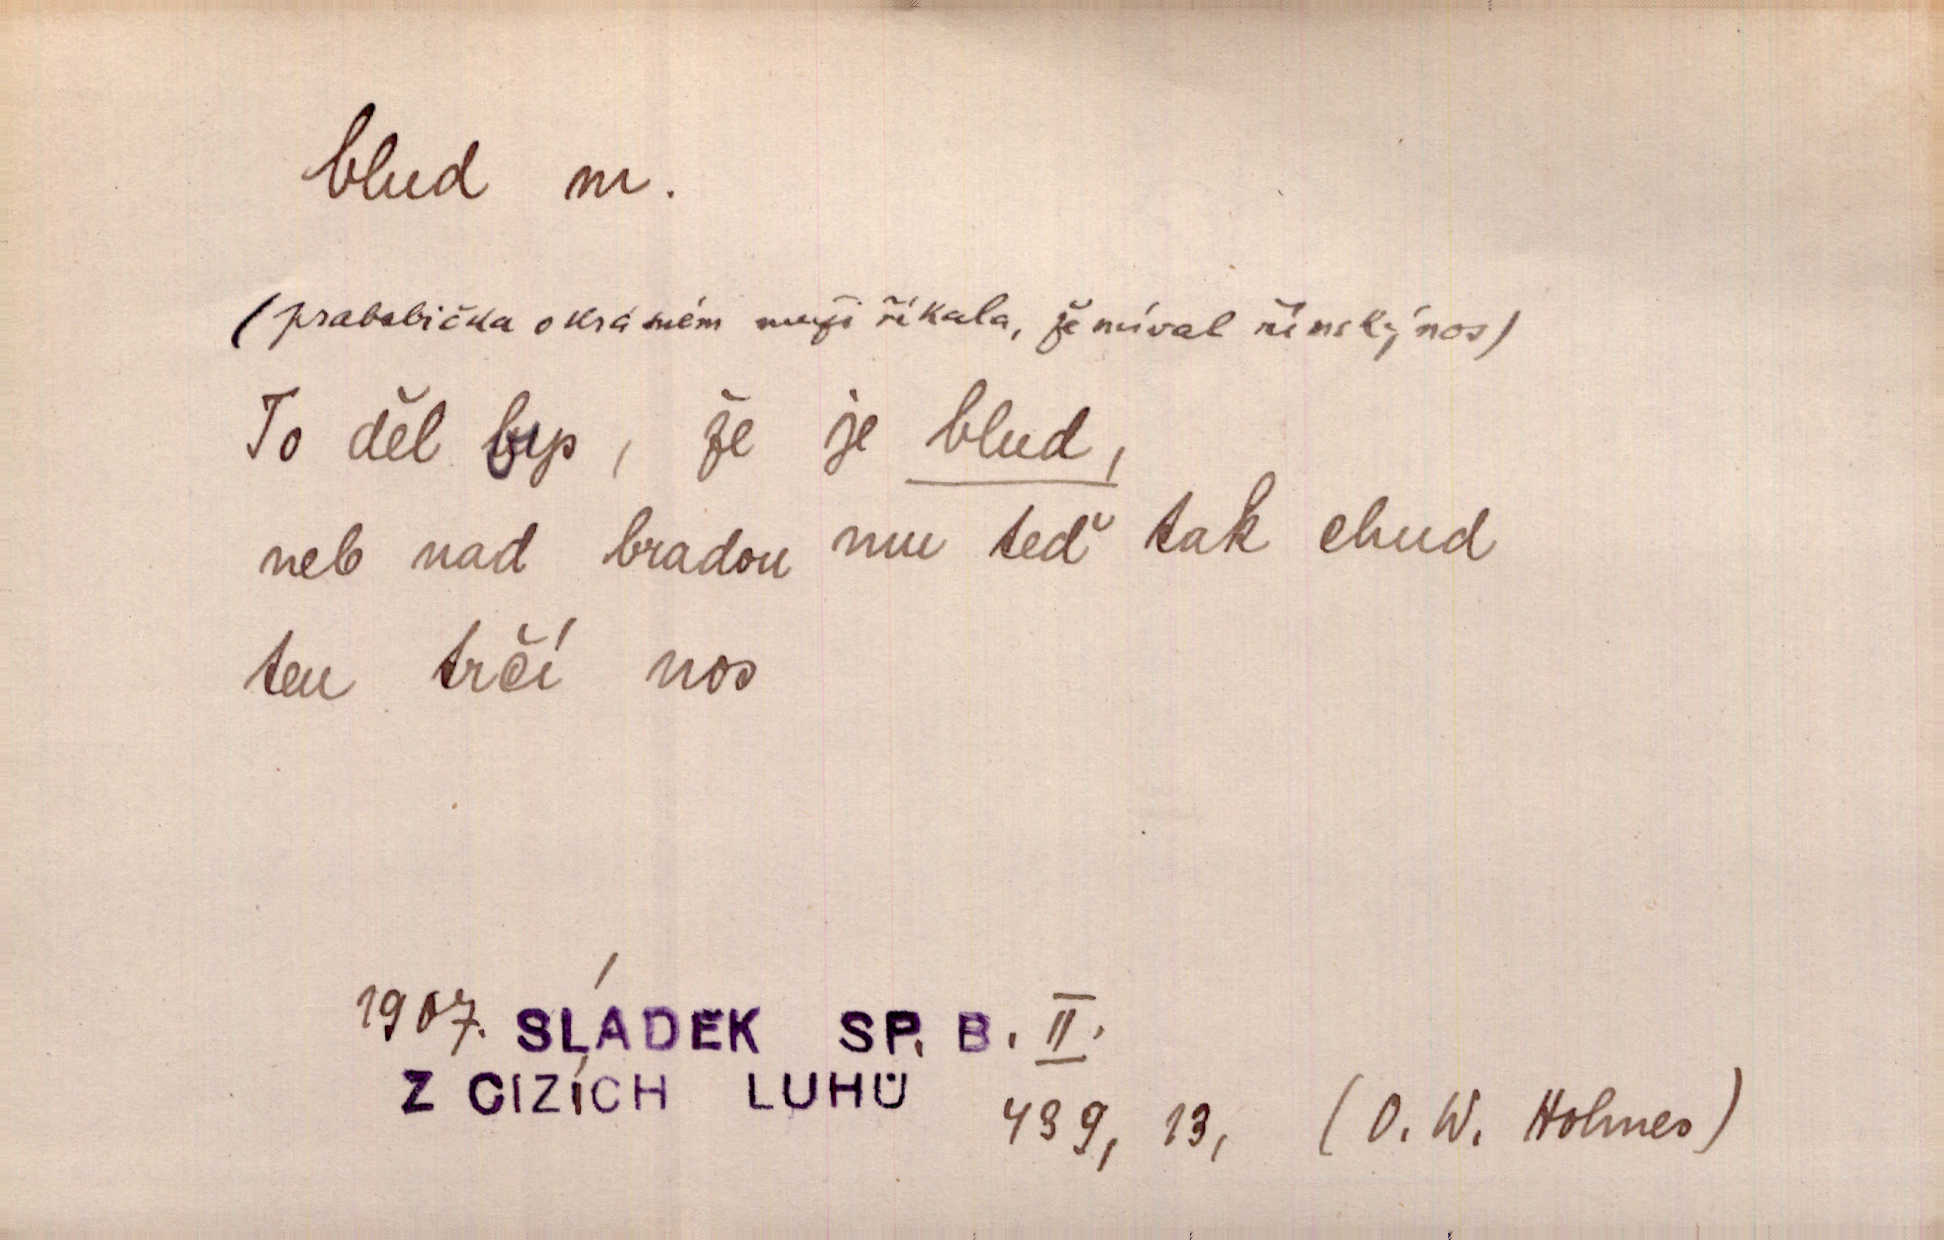 blud m.
(prababička o krásném muži říkala, že míval římský nos)
To děl bys, že je blud,
neb nad bradou mu teď tak chud
ten trčí nos
1907. SLÁDEK SP. B. II.
Z CIZÍCH LUHŮ
439, 13, (O. W. Holmes)